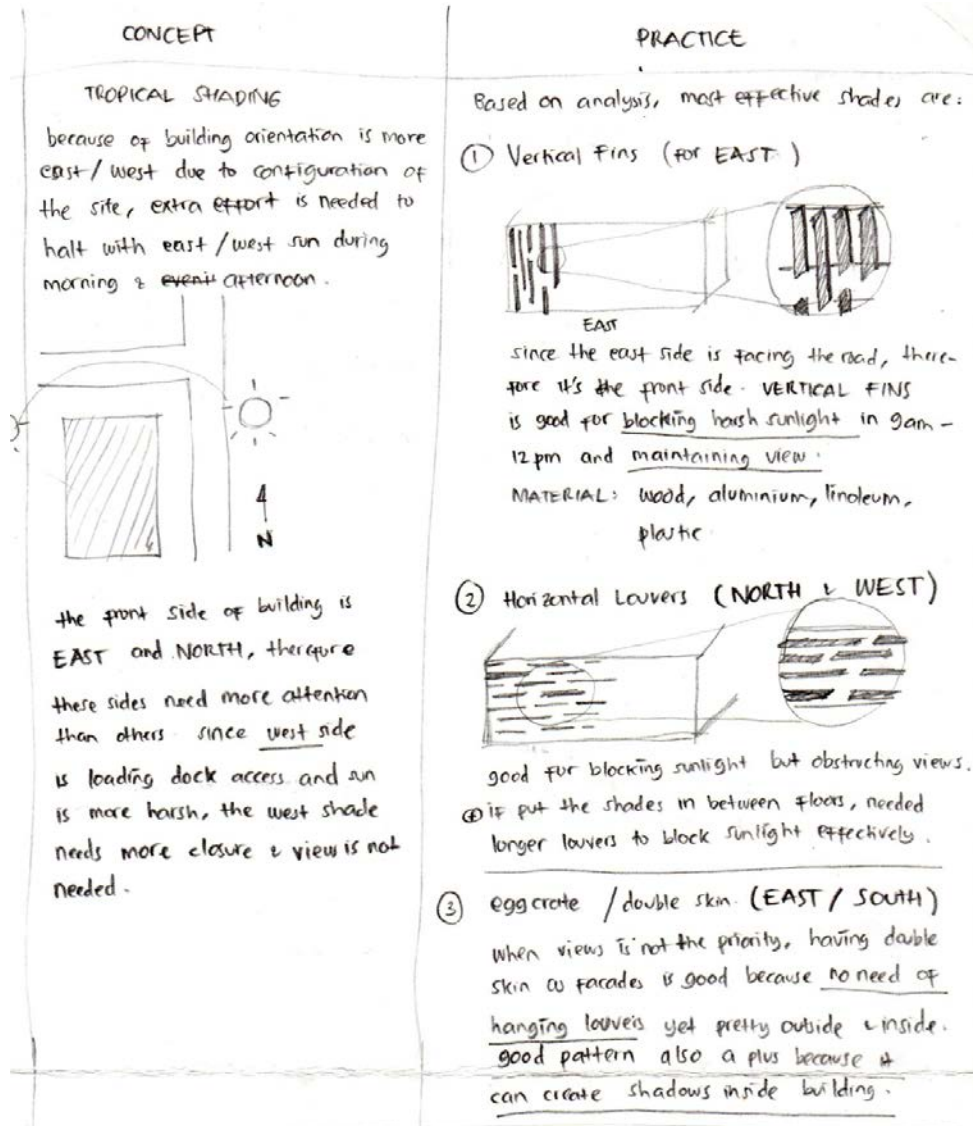 CONCEPT
TROPICAL SHADING
because of building orientation is more
east/west due to configuration of
the site, extra effort is needed to
halt with east/west sun during
morning & afternoon.
N
the front side of building is
EAST and NORTH, therefore
these sides need more attention
than others. since west side
is loading dock access and sun
is more harsh, the west shade
needs more closure & view is not
needed.
PRACTICE
Based on analysis, most effective shades are:
① Vertical Fins (for EAST)
EAST
since the east side is facing the road, there-
fore it's the front side. VERTICAL FINS
is good for blocking harsh sunlight in 9am -
12pm and maintaining view.
MATERIAL: wood, aluminium, linoleum,
plastic.
② Horizontal Louvers (NORTH & WEST)
good for blocking sunlight but obstructing views.
⊕ if put the shades in between floors, needed
longer louvers to block sunlight effectively.
③ egg crate / double skin. (EAST / SOUTH)
when views is not the priority, having double
skin as facades is good because no need of
hanging louvers yet pretty outside & inside.
good pattern also a plus because it
can create shadows inside building.